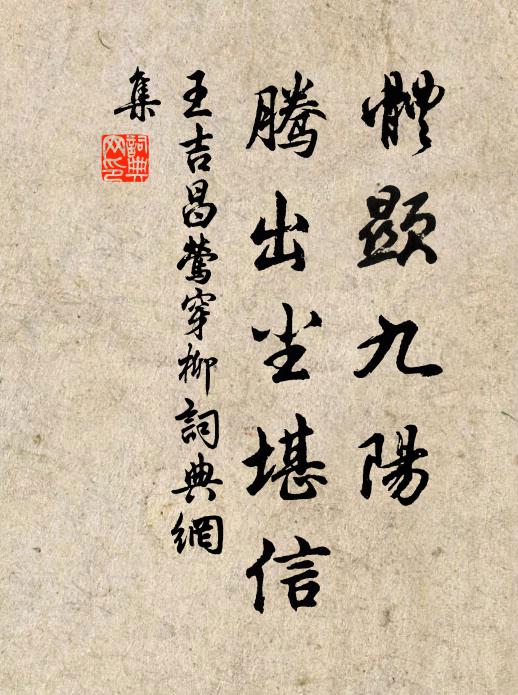 體顯九陽
騰出尘堪信
王吉昌鶯穿柳詞典網
集
詞典
网印